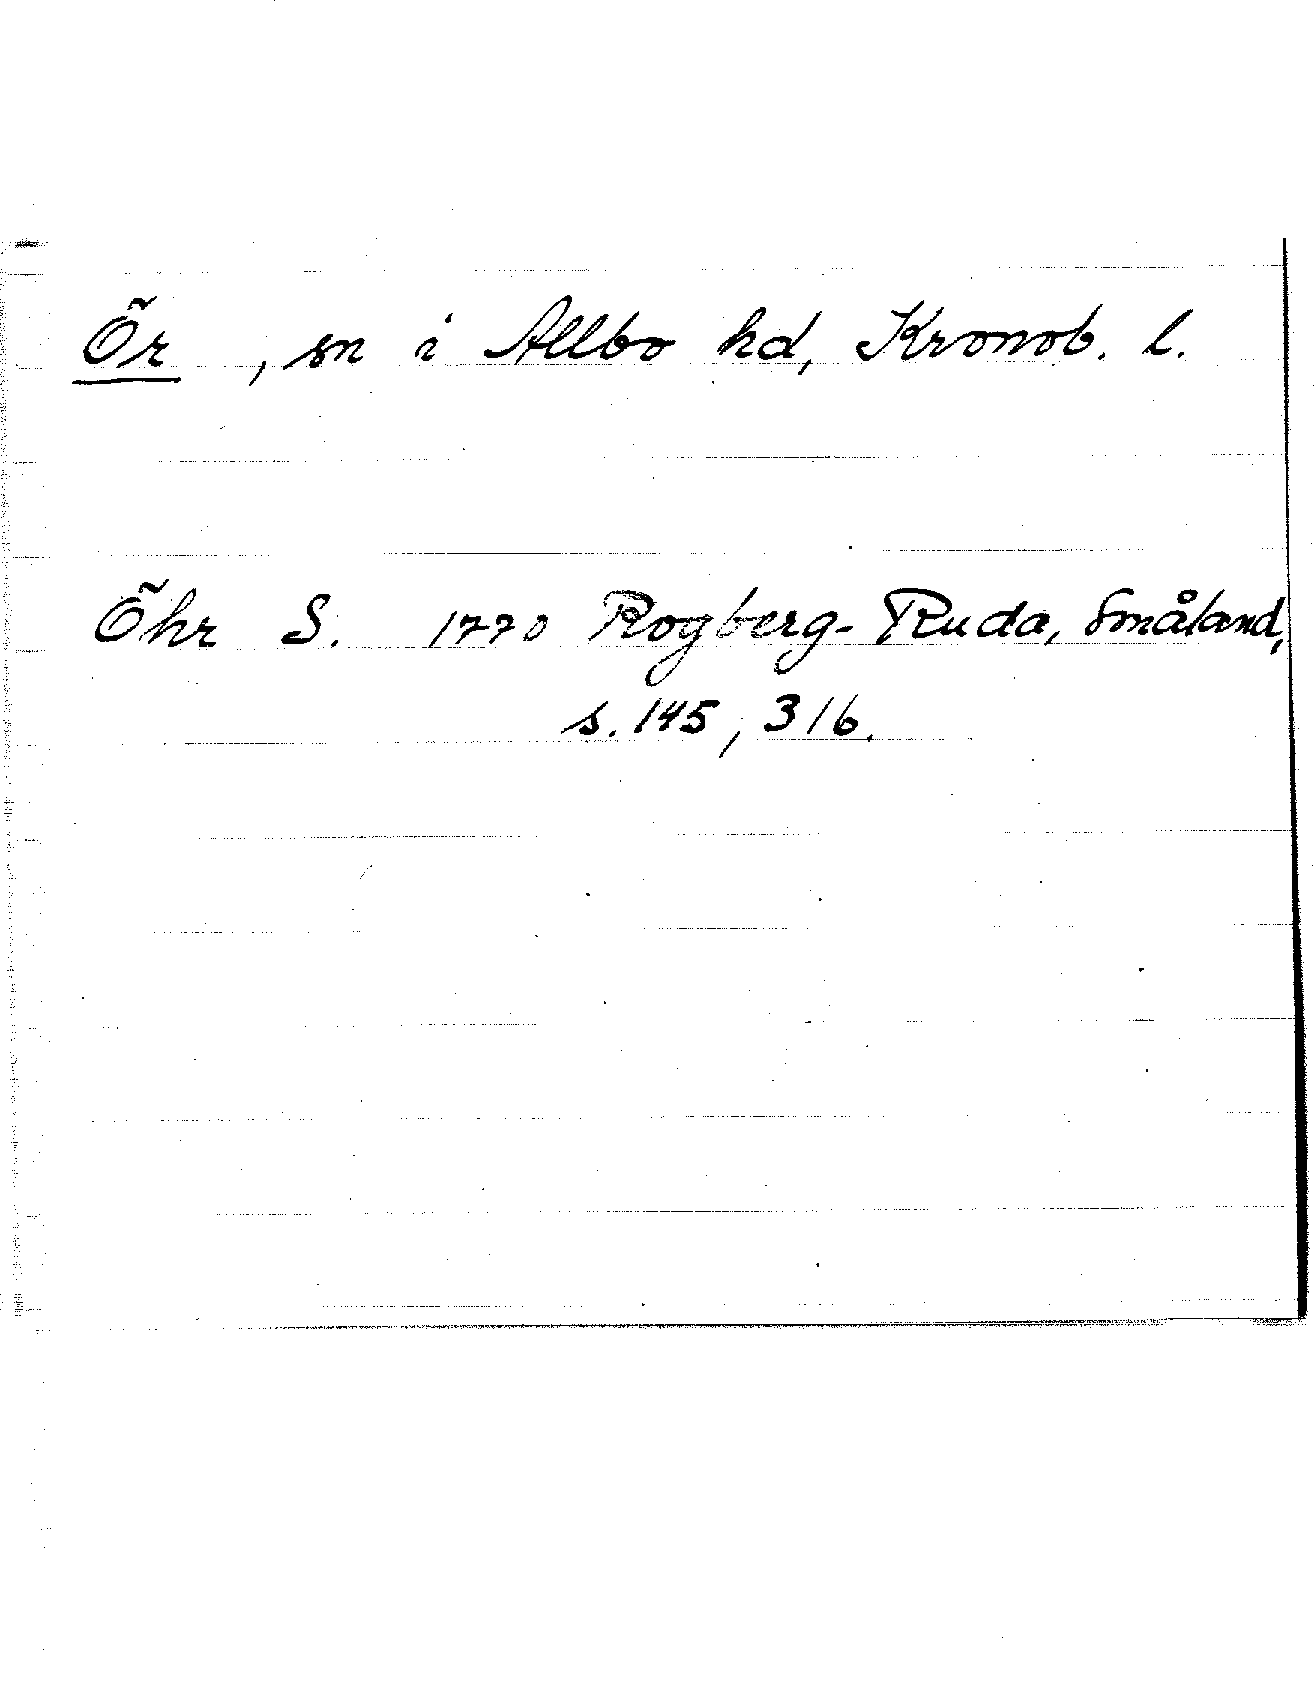 Ör, sn i Allbo hd, Kronob. l.
Öhr S. 1770 Rogberg-Ruda, Småland,
s. 145, 316.